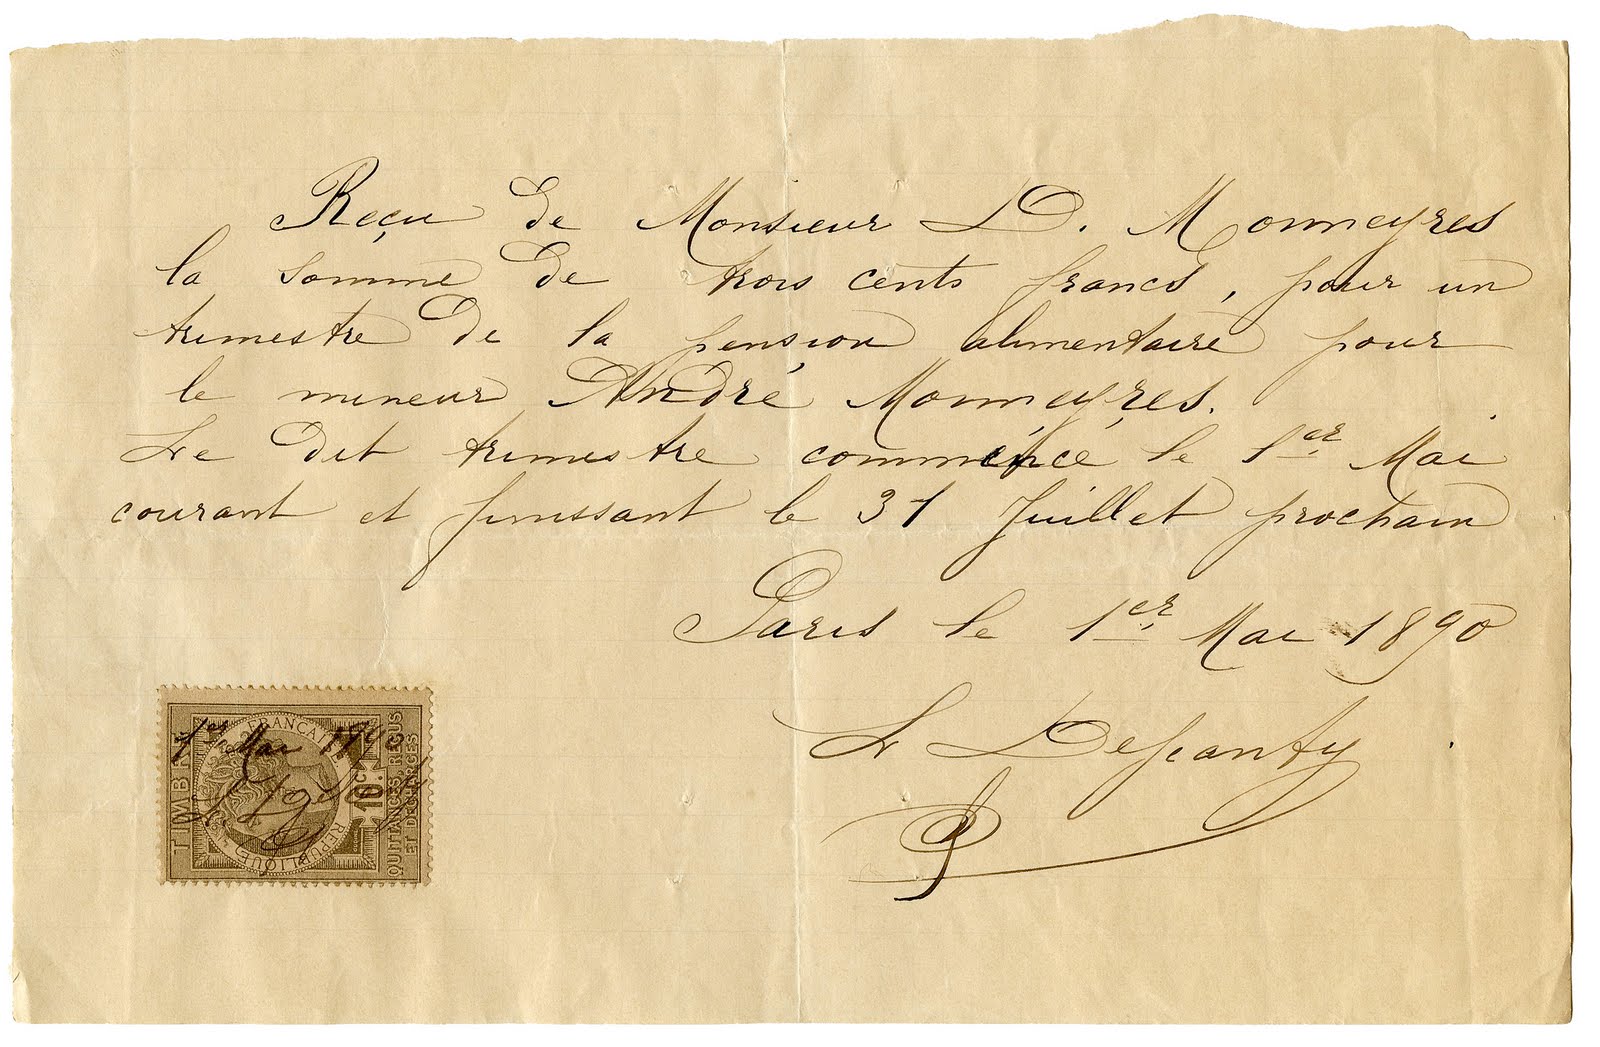 Reçu de Monsieur D. Monneyres
la somme de trois cents francs, pour un
trimestre de la pension alimentaire pour
le mineur André Monneyres.
Le dit trimestre commencé le 1er Mai
courant et finissant le 31 Juillet prochain
Paris le 1er Mai 1890
L
1er Mai 1890
TIMBRE
RÉPUBLIQUE FRANÇAISE
10c
QUITTANCES, REÇUS
ET DÉCHARGES